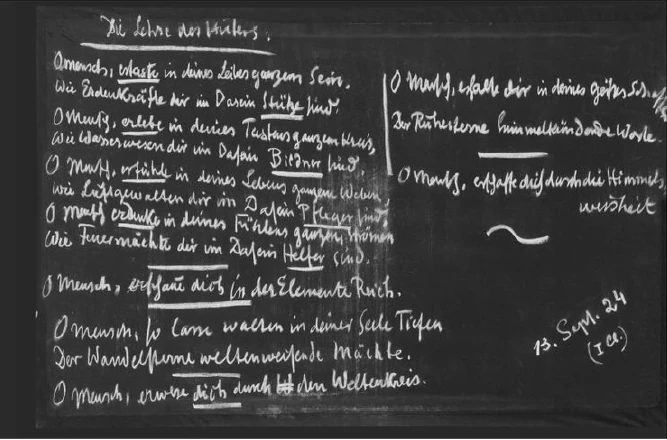 Die Lehre des Hüters.
O Mensch, ertaste in deines Leibes ganzem Sein,
Wie Erdenkräfte dir im Dasein Stütze sind.
O Mensch, erlebe in deines Tastens ganzem Kreis,
Wie Wasserwesen dir im Dasein Bildner sind.
O Mensch, erfühle in deines Lebens ganzem Weben
Wie Luftgewalten dir im Dasein Pfleger sind,
O Mensch erdenke in deines Fühlens ganzem Strömen
Wie Feuermächte dir im Dasein Helfer sind.
O Mensch, erschaue dich in der Elemente Reich.
O Mensch, so lasse walten in deiner Seele Tiefen
Der Wandelsterne weltenweisende Mächte.
O Mensch, erwese dich durch den Weltenkreis.
O Mensch, erhalte dir in deines Geistes
Der Ruhesterne himmelkündende Worte.
O Mensch, erschaffe dich durch die Himmels
weisheit
13. Sept. 24
(I Cl.)